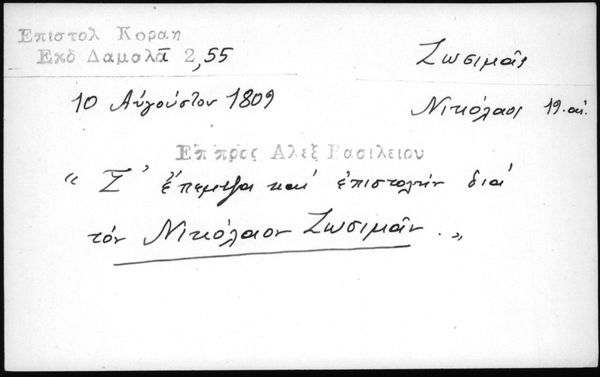 Επιστολ Κοραη
Εκδ Δαμαλᾶ 2,55
Ζωσιμᾶς
10 Αὐγούστου 1809
Νικόλαος 19. αἰ.
Επ προς Αλεξ Βασιλειου
“ Σ’ ἔπεμψα καὶ ἐπιστολὴν διὰ
τὸν Νικόλαον Ζωσιμᾶν . „